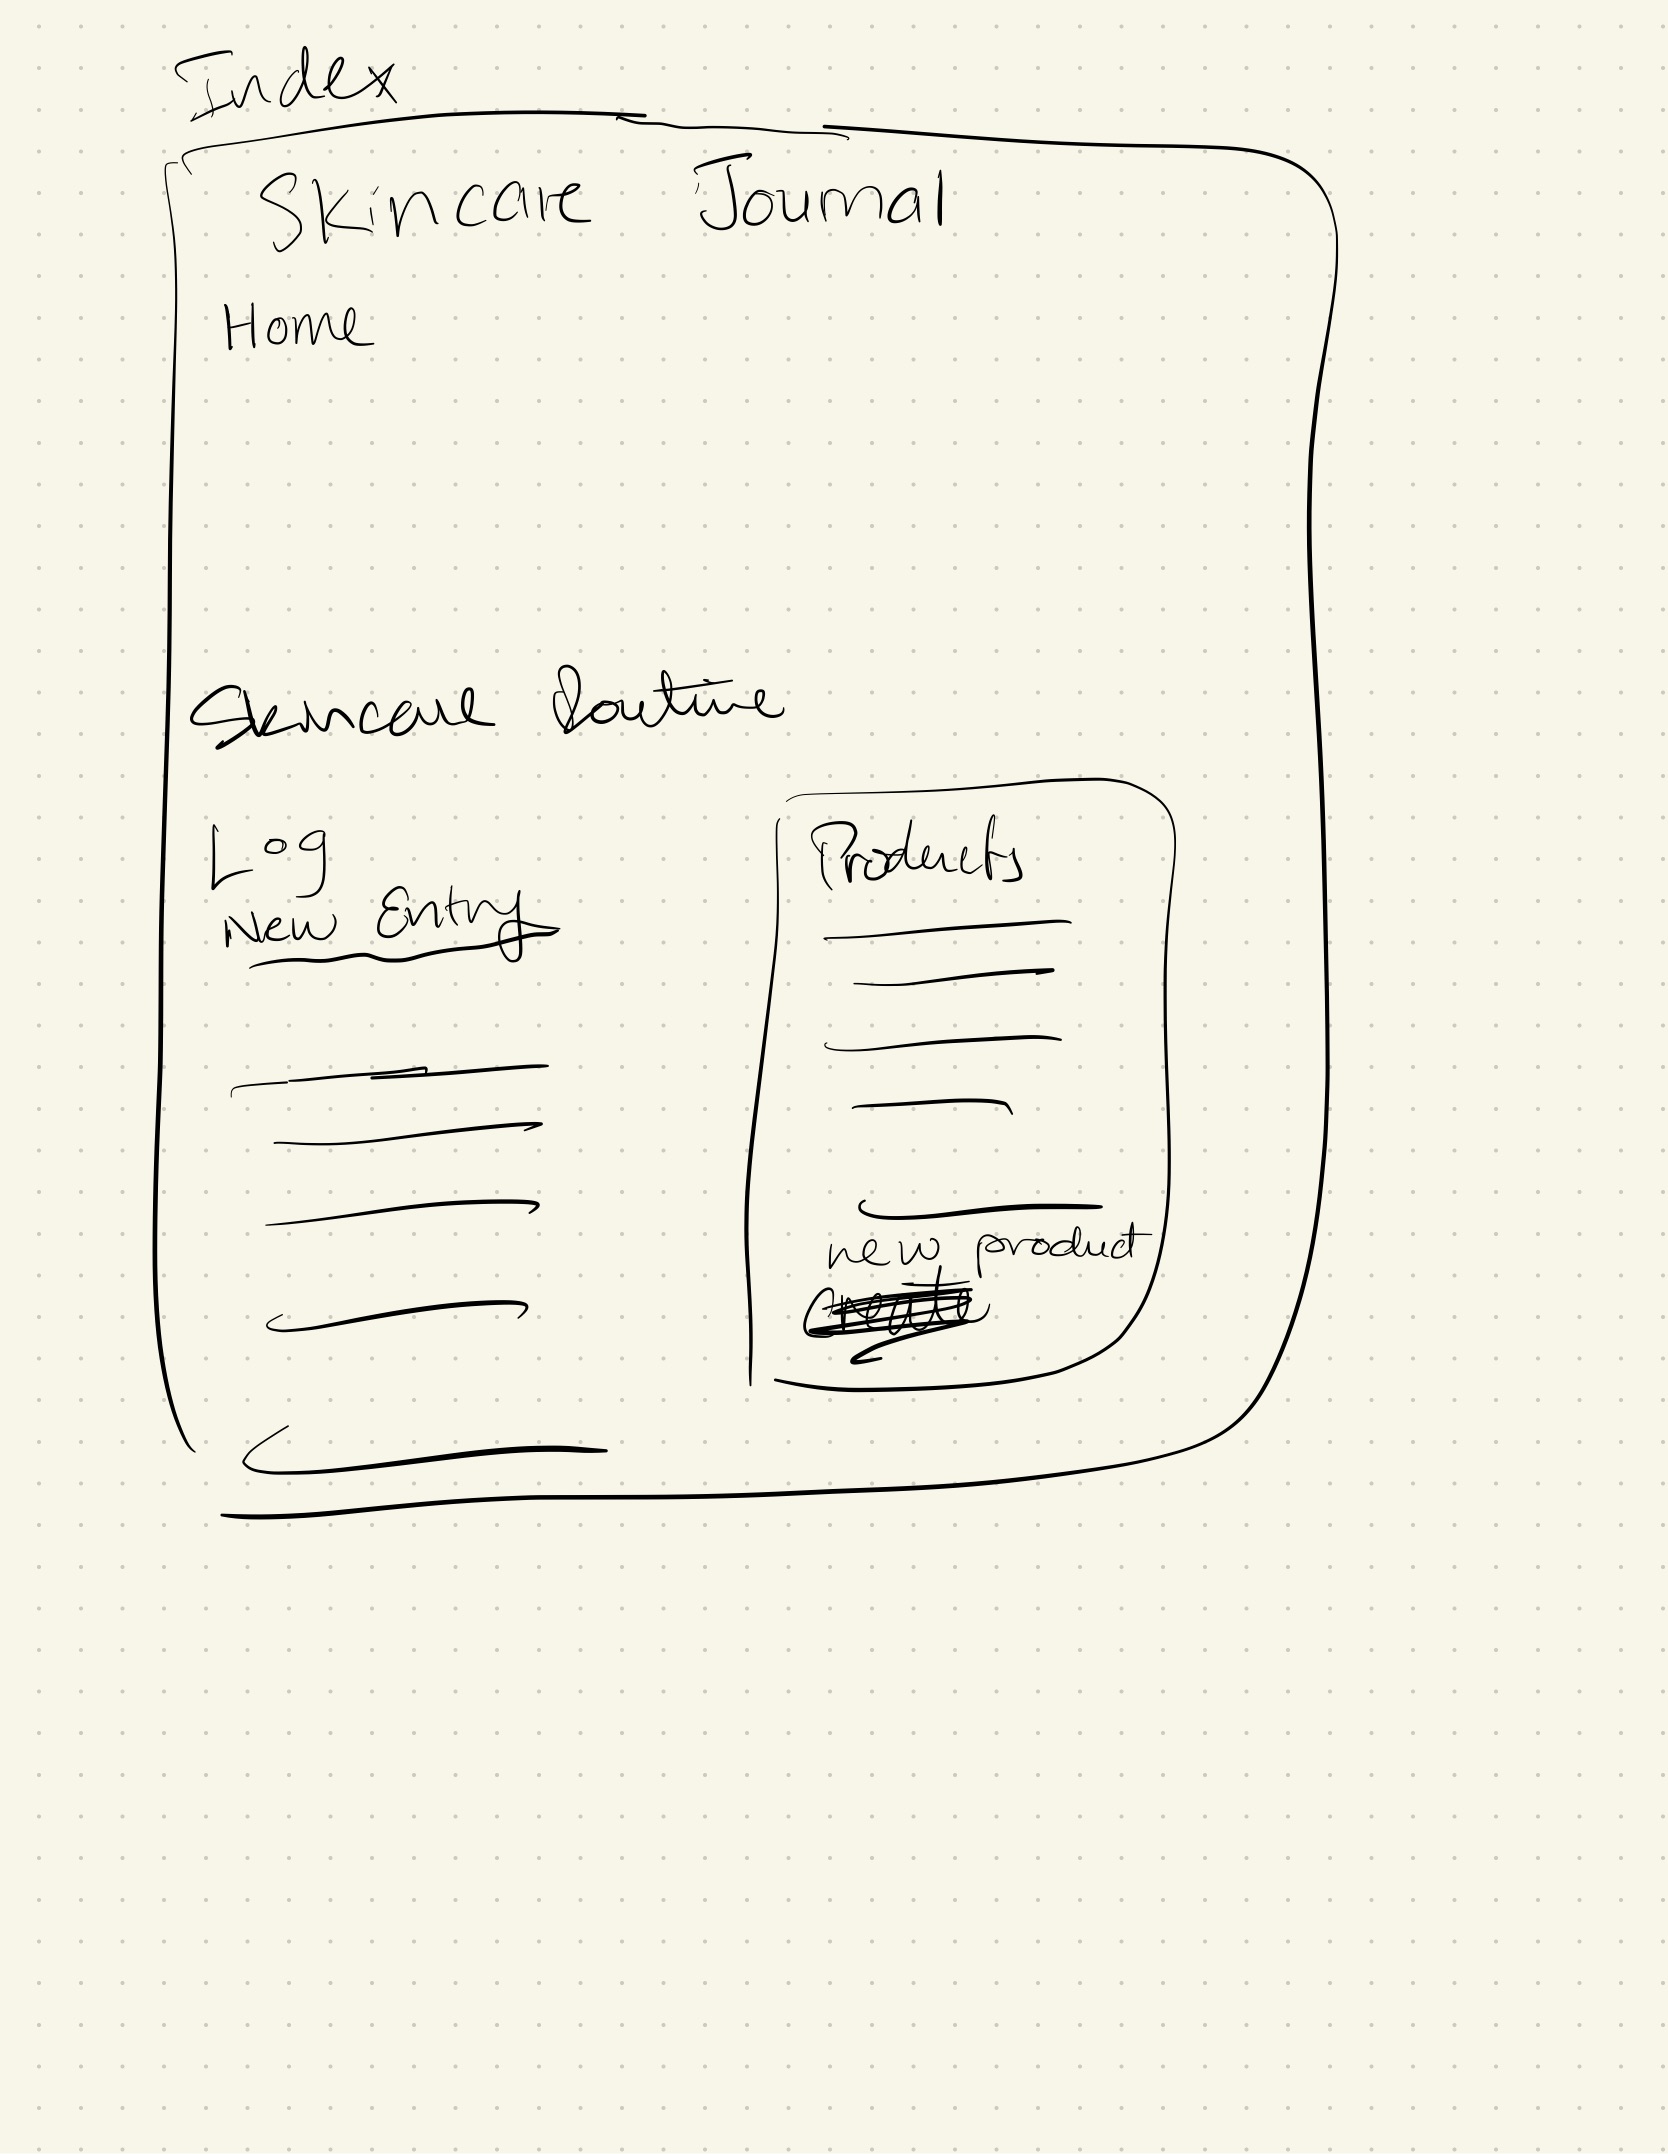 Index
Skincare Journal
Home
Skincare Routine
Log
New Entry
Products
new product